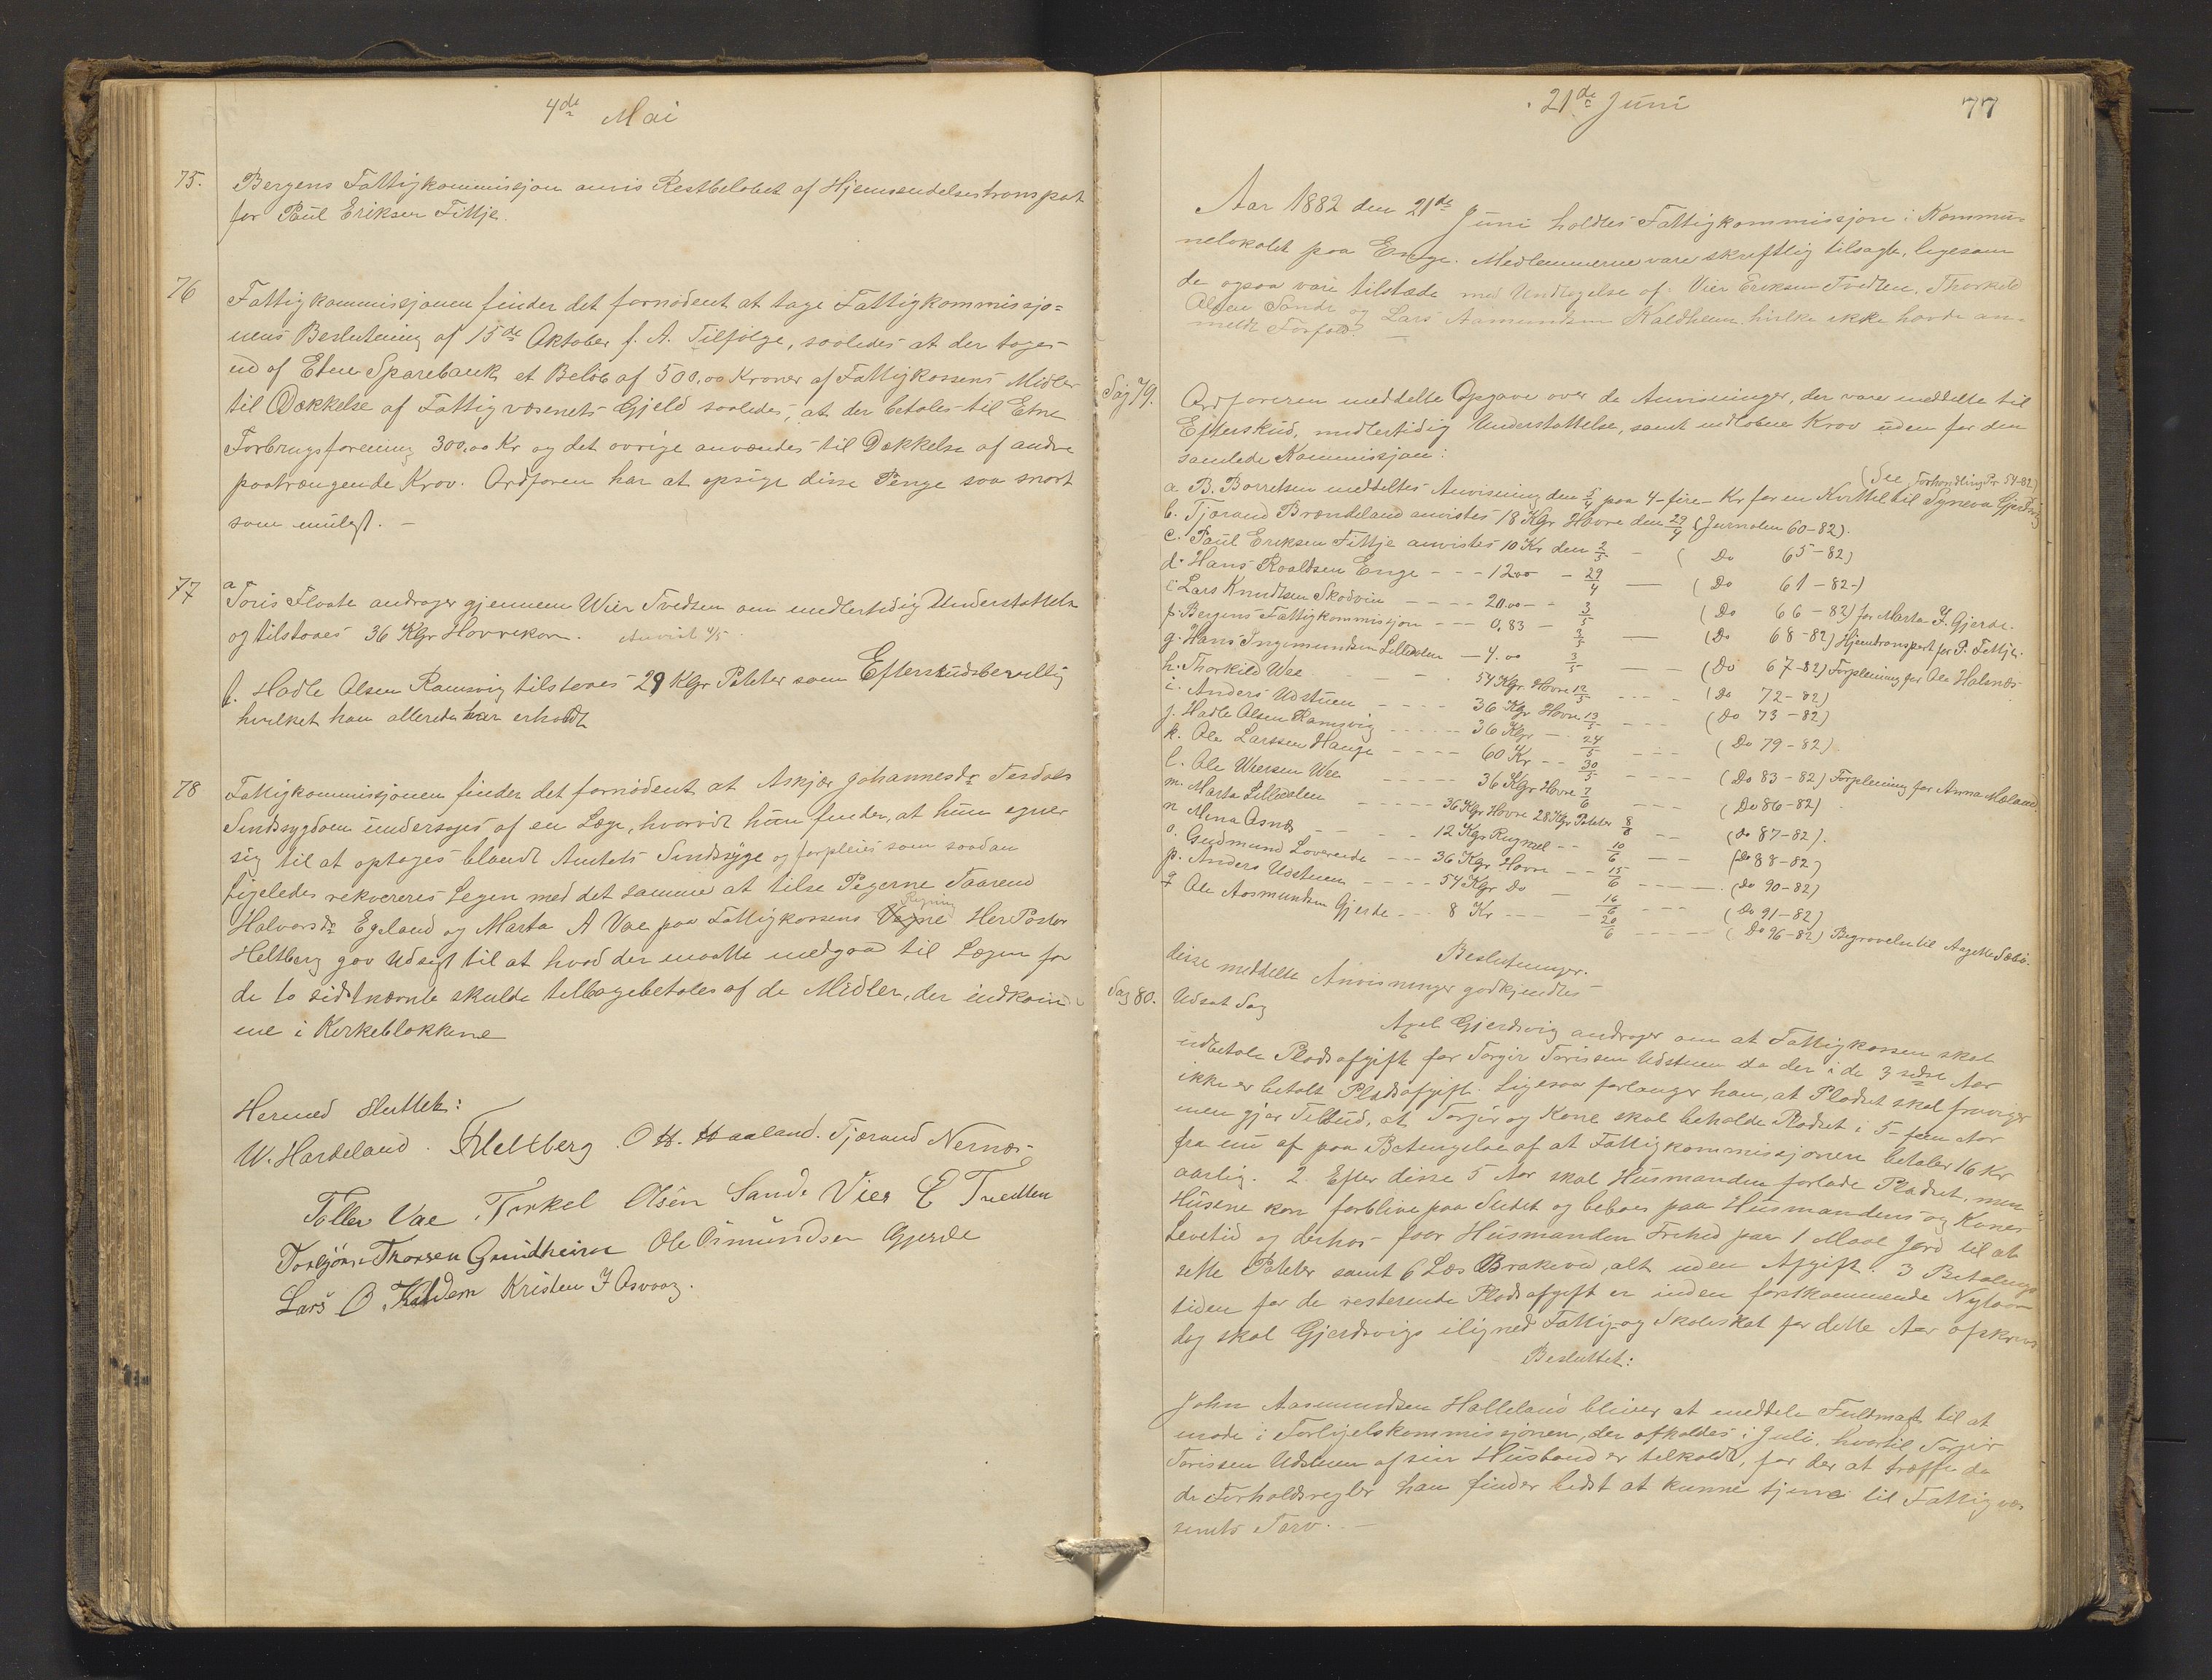 4de Mai
75. Bergens Fattigkommissjon anvis Restbeløbet af Hjemsendelsestransport
for Paul Eriksen Fittje.
76 Fattigkommissjonen finder det fornødent at tage Fattigkommissjo=
nens Beslutning af 15de Oktober f. A. Tilfølge, saaledes at der tages
ud af Etne Sparebank et Beløb af 500,00 Kroner af Fattigkassens Midler
til Dækkelse af Fattigvæsenets Gjeld saaledes, at der betales til Etne
Forbrugsforening 300,00 Kr og det øvrige anvendes til Dækkelse af andre
paatrængende Krav. Ordføren har at opsige disse Penge saa snart
som muligt. –
77 a Toris Floate andrager gjennem Wier Tvedten om midlertidig Understøttelse
og tilstaaes 36 Kgr Havrekorn. Anvist 4/5.
b. Hadle Olsen Ramsvig tilstaaes 29 Kgr Poteter som Efterskudsbevillig
hvilket han allerede har erholdt
78 Fattigkommissjonen finder det fornødent at Askjær Johannesdr Tesdals
Sindssygdom undersøges af en Læge, hvorvidt han finder, at hun egner
sig til at optages blandt Amtets Sindssyge og forpleies som saadan
ligeledes rekvereres Legen med det samme at tilse Pigerne Taarend
Halvorsdr Egeland og Marta A Vae paa Fattigkassens Vegne Regning Her Pastor
Heltberg gav Udsigt til at hvad der maatte medgaa til Lægen for
de to sidstnævnte skulde tilbagebetales af de Midler, der indkom=
me i Kirkeblokkene
Hermed sluttet:
W. Hardeland. F Heltberg O H. Haaland. Tjærand Nernæs
Tollev Vae. Torkel Olsen Sande Vier E Tvedten
Torbjørn Thorsen Grindheim Ole Osmundsen Gjerde
Lars O Kaldem Kristen J Osvaag.
21de Juni 77
Aar 1882 den 21de Juni holdtes Fattigkommissjon i Kommu=
nelokalet paa Enge. Medlemmerne vare skriftlig tilsagte, ligesom
de ogsaa vare tilstæde med Undtagelse af: Vier Eriksen Tvedten, Thorkild
Olsen Sande og Lars Aamundsen Kaldheim, hvilke ikke havde an=
meldt Forfald. –
Sag 79. Ordføreren meddelte Opgave over de Anvisninger, der vare meddelte til
Efterskud, midlertidig Understøttelse, samt indløbne Krav uden for den
samlede Kommissjon:
(See Forhandling Nr 54-82)
a B. Børretsen meddeltes Anvisning den 5/4 paa 4-fire- Kr for en Kvittel til Syneva Gjerdsvig
b. Tjærand Brændeland anvistes 18 Kgr Havre den 29/4 (Jurnalen 60-82).
c. Paul Eriksen Fittje anvistes 10 Kr den 2/5 – (Do 65-82)
d. Hans Roaldsen Enge - - - 12.00 - 29/4 — (Do 61-82-)
e Lars Knudtsen Skodvin - - - - 20.00 - - 3/5 (Do 66-82) for Marta J. Gjerde.
f. Bergens Fattigkommissjon - - - 0,83 - 3/5 — (Do 68-82) Hjemtransport for P. Fittje.
g. Hans Ingemundsen Lilledalen — 4.00 3/5 — (Do 67-82) Forpleining for Ole Halsnæs
h. Thorkild Wee - - - 54 Kgr. Havre 12/5 - - - (Do 72-82)
i. Anders Udstuen - - - - 36 Kgr Havre 13/5 - - - (Do 73-82)
j. Hadle Olsen Ramsvig - - - - - 36 Kgr - 24/5 - - - (Do 79-82)
k. Ole Larssen Hauge - - - - 60 Kr - - 30/5 - - - - (Do 83-82) Forpleining for Anna Mæland
l. Ole Weersen Wee - - - - - 36 Kgr Havre 7/6 - - - (Do 86-82)
m. Marta Lilledalen - - - - - 36 Kgr Havre 28 Kgr Poteter 8/6 - - (Do 87-82).
n Mina Osnæs - - - - - 12 Kgr Rugmel - - 10/6 - - (Do 88-82)
o. Gudmund Løvereide - - - 36 Kgr Havre - - 15/6 - - - - (Do 90-82)
p. Anders Udstuen - - - - 54 Kgr Do - 16/6 - - - (Do 91-82)
q Ole Aasmundsen Gjerde - - - 8 Kr - - - - 20/6 - - - - (Do 96-82) Begravelse til Aagotte Sæbø.
Beslutninger.
disse meddelte Anvisninger godkjendtes
Sag 80. Udsat Sag
Axel Gjerdsvig andrager om at Fattigkassen skal
udbetale Pladsafgift for Torgir Torissen Udstuen da der i de 3 sidste Aar
ikke er betalt Pladsafgift. Ligesaa forlanger han, at Pladset skal fraviges
men gjør Tilbud, at Torgir og Kone skal beholde Pladset i 5-fem Aar
fra nu af paa Betingelse af at Fattigkommissjonen betaler 16 Kr
aarlig. 2. Efter disse 5 Aar skal Husmanden forlade Pladset, men
Husene kan forblive paa Stedet og beboes paa Husmandens og Kones
Levetid og derhos faar Husmanden Frihed paa 1 Maal Jord til at
sette Poteter samt 6 Læs Brakeved, alt uden Afgift. 3 Betalings
tiden for de resterende Pladsafgift er inden førstkommende Nytaars
dag skal Gjerdsvigs ilignet Fattig- og Skoleskat for dette Aar afskrives
Besluttet:
John Aasmundsen Halleland bliver at meddele Fuldmagt til at
møde i Forligelskommissjonen, der afholdes i Juli, hvortil Torgir
Torissen Udstuen af sin Husbond er tilkaldt, for der at træffe da
de Forholdsregler han finder bedst at kunne tjene til Fattigvæ
senets Tarv. –